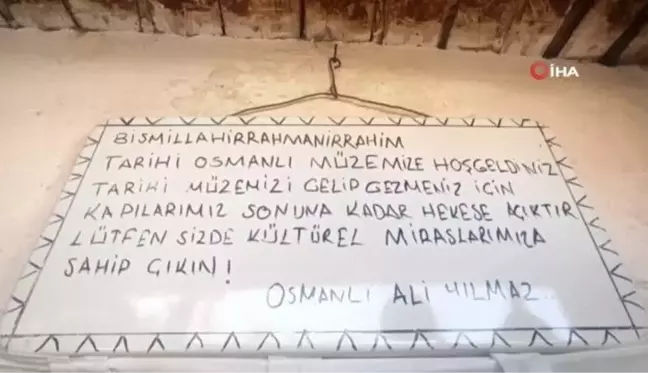 İHA
BİSMİLLAHİRRAHMANİRRAHİM
TARİHİ OSMANLI MÜZEMİZE HOŞGELDİNİZ
TARİHİ MÜZEMİZİ GELİP GEZMENİZ İÇİN
KAPILARIMIZ SONUNA KADAR HEKESE AÇIKTIR
LÜTFEN SİZDE KÜLTÜREL MİRASLARIMIZA
SAHİP ÇIKIN!
OSMANLI ALİ YILMAZ